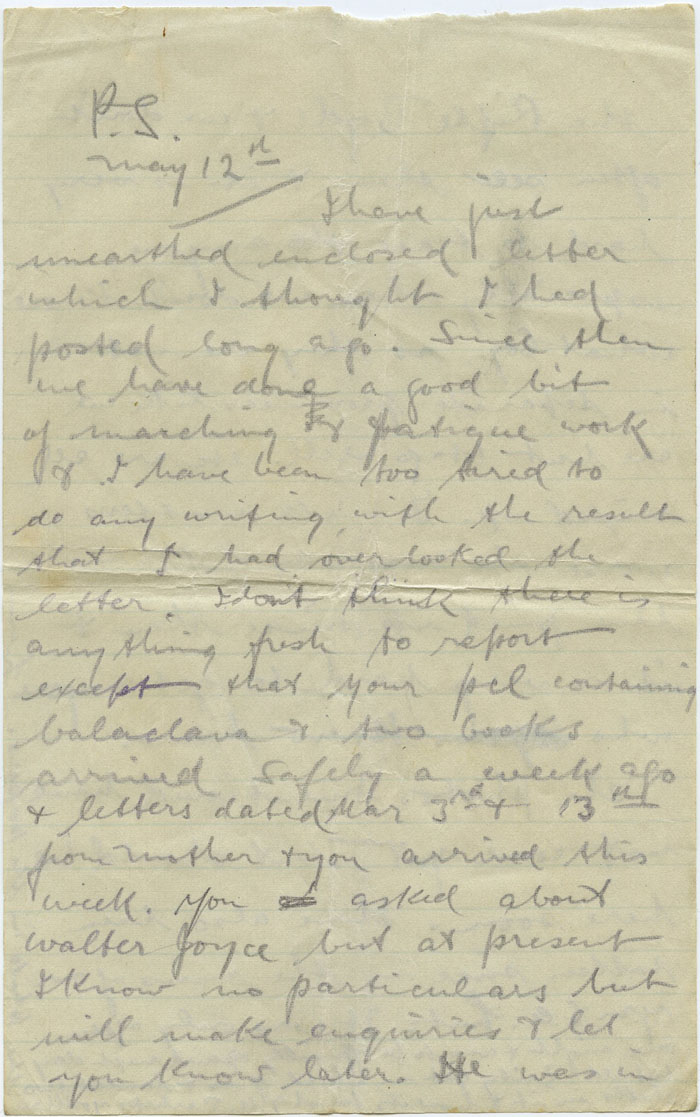 P.S.
May 12th
I have just
unearthed enclosed letter
which I thought I had
posted long ago. Since then
we have done a good bit
of marching & fatigue work
& I have been too tired to
do any writing, with the result
that I had overlooked the
letter. I don't think there is
anything fresh to report
except that your pcl containing
balaclava & two books
arrived safely a week ago
& letters dated Mar 3rd & 13th
from Mother & you arrived this
week. You asked about
Walter Joyce but at present
I know no particulars but
will make enquiries & let
you know later. He was in